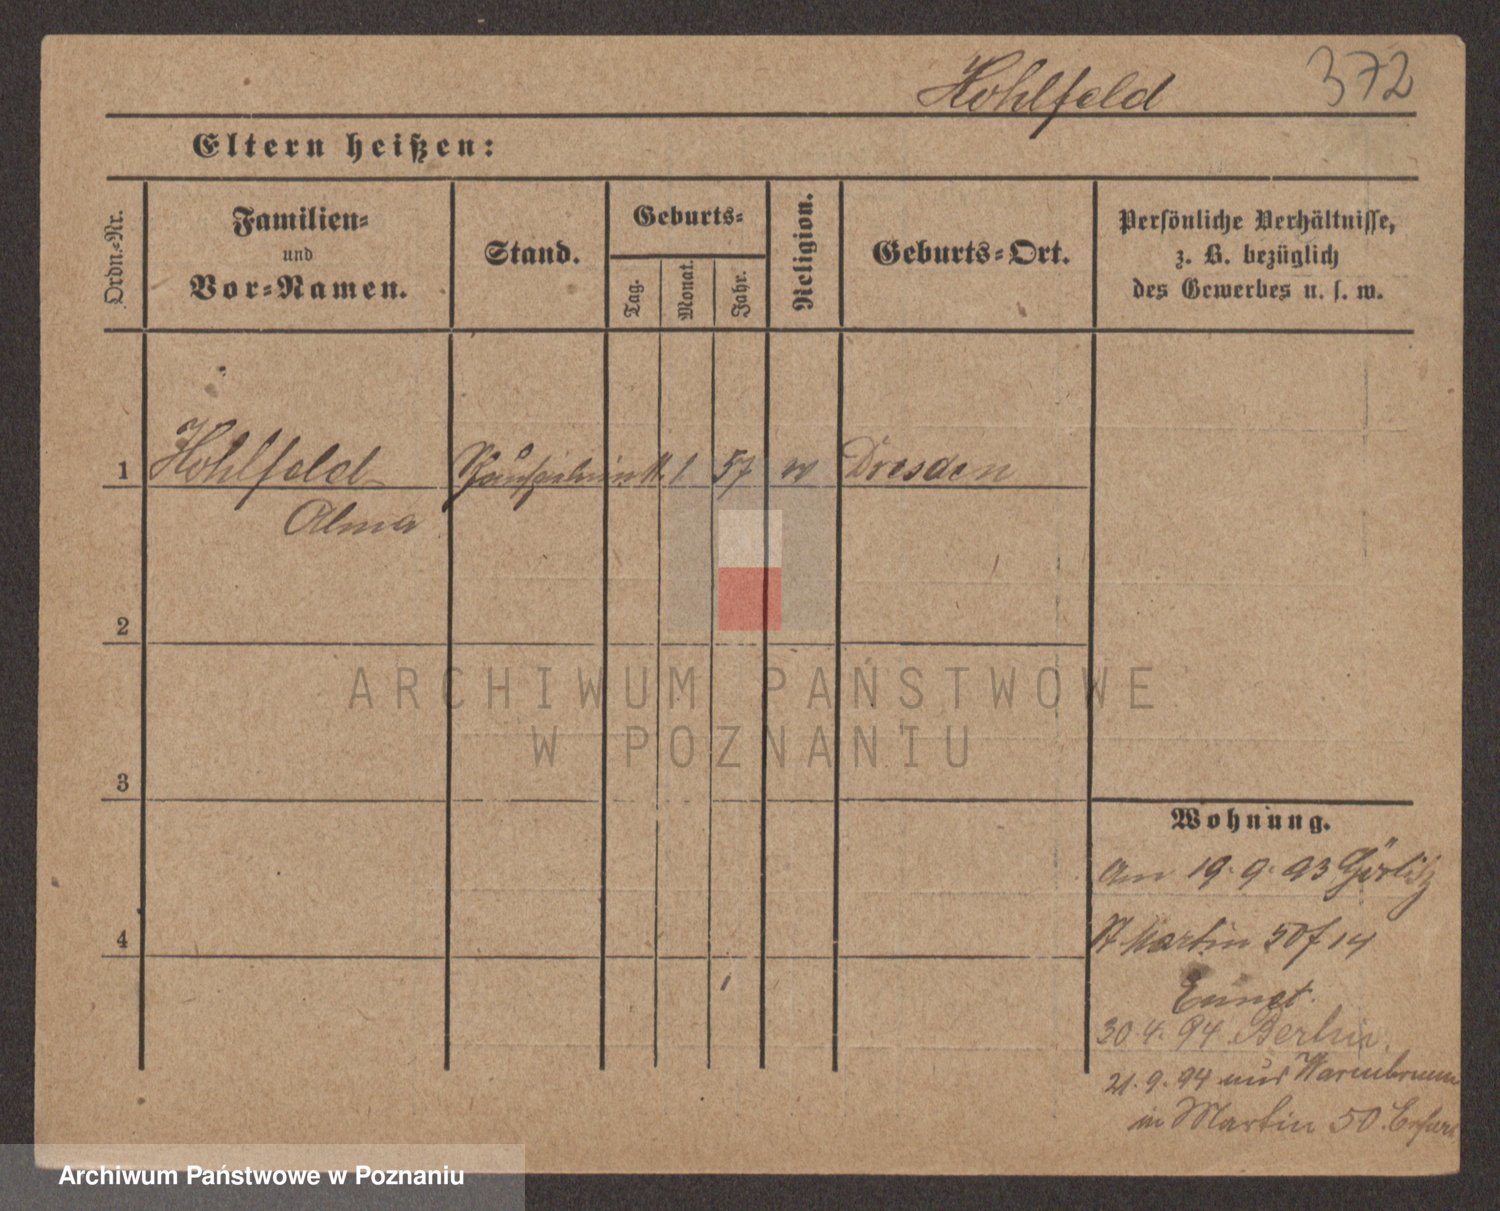 Hohlfeld 372
Eltern heißen:
Ordn.-Nr.
Familien-
und
Vor-Namen.
Stand.
Geburts-
Tag.
Monat.
Jahr.
Religion.
Geburts-Ort.
Persönliche Verhältnisse,
z. B. bezüglich
des Gewerbes u. s. w.
1 Hohlfeld Schauspielerin 11. 1. 57 w Dresden
Alma
2
3
4
Wohnung.
am 19. 9. 93 Görlitz
St Martin 50 f 14
30. 4. 94 Berlin.
21. 9. 94 aus Warmbrunn
in Martin 50.
ARCHIWUM PAŃSTWOWE
W POZNANIU
Archiwum Państwowe w Poznaniu